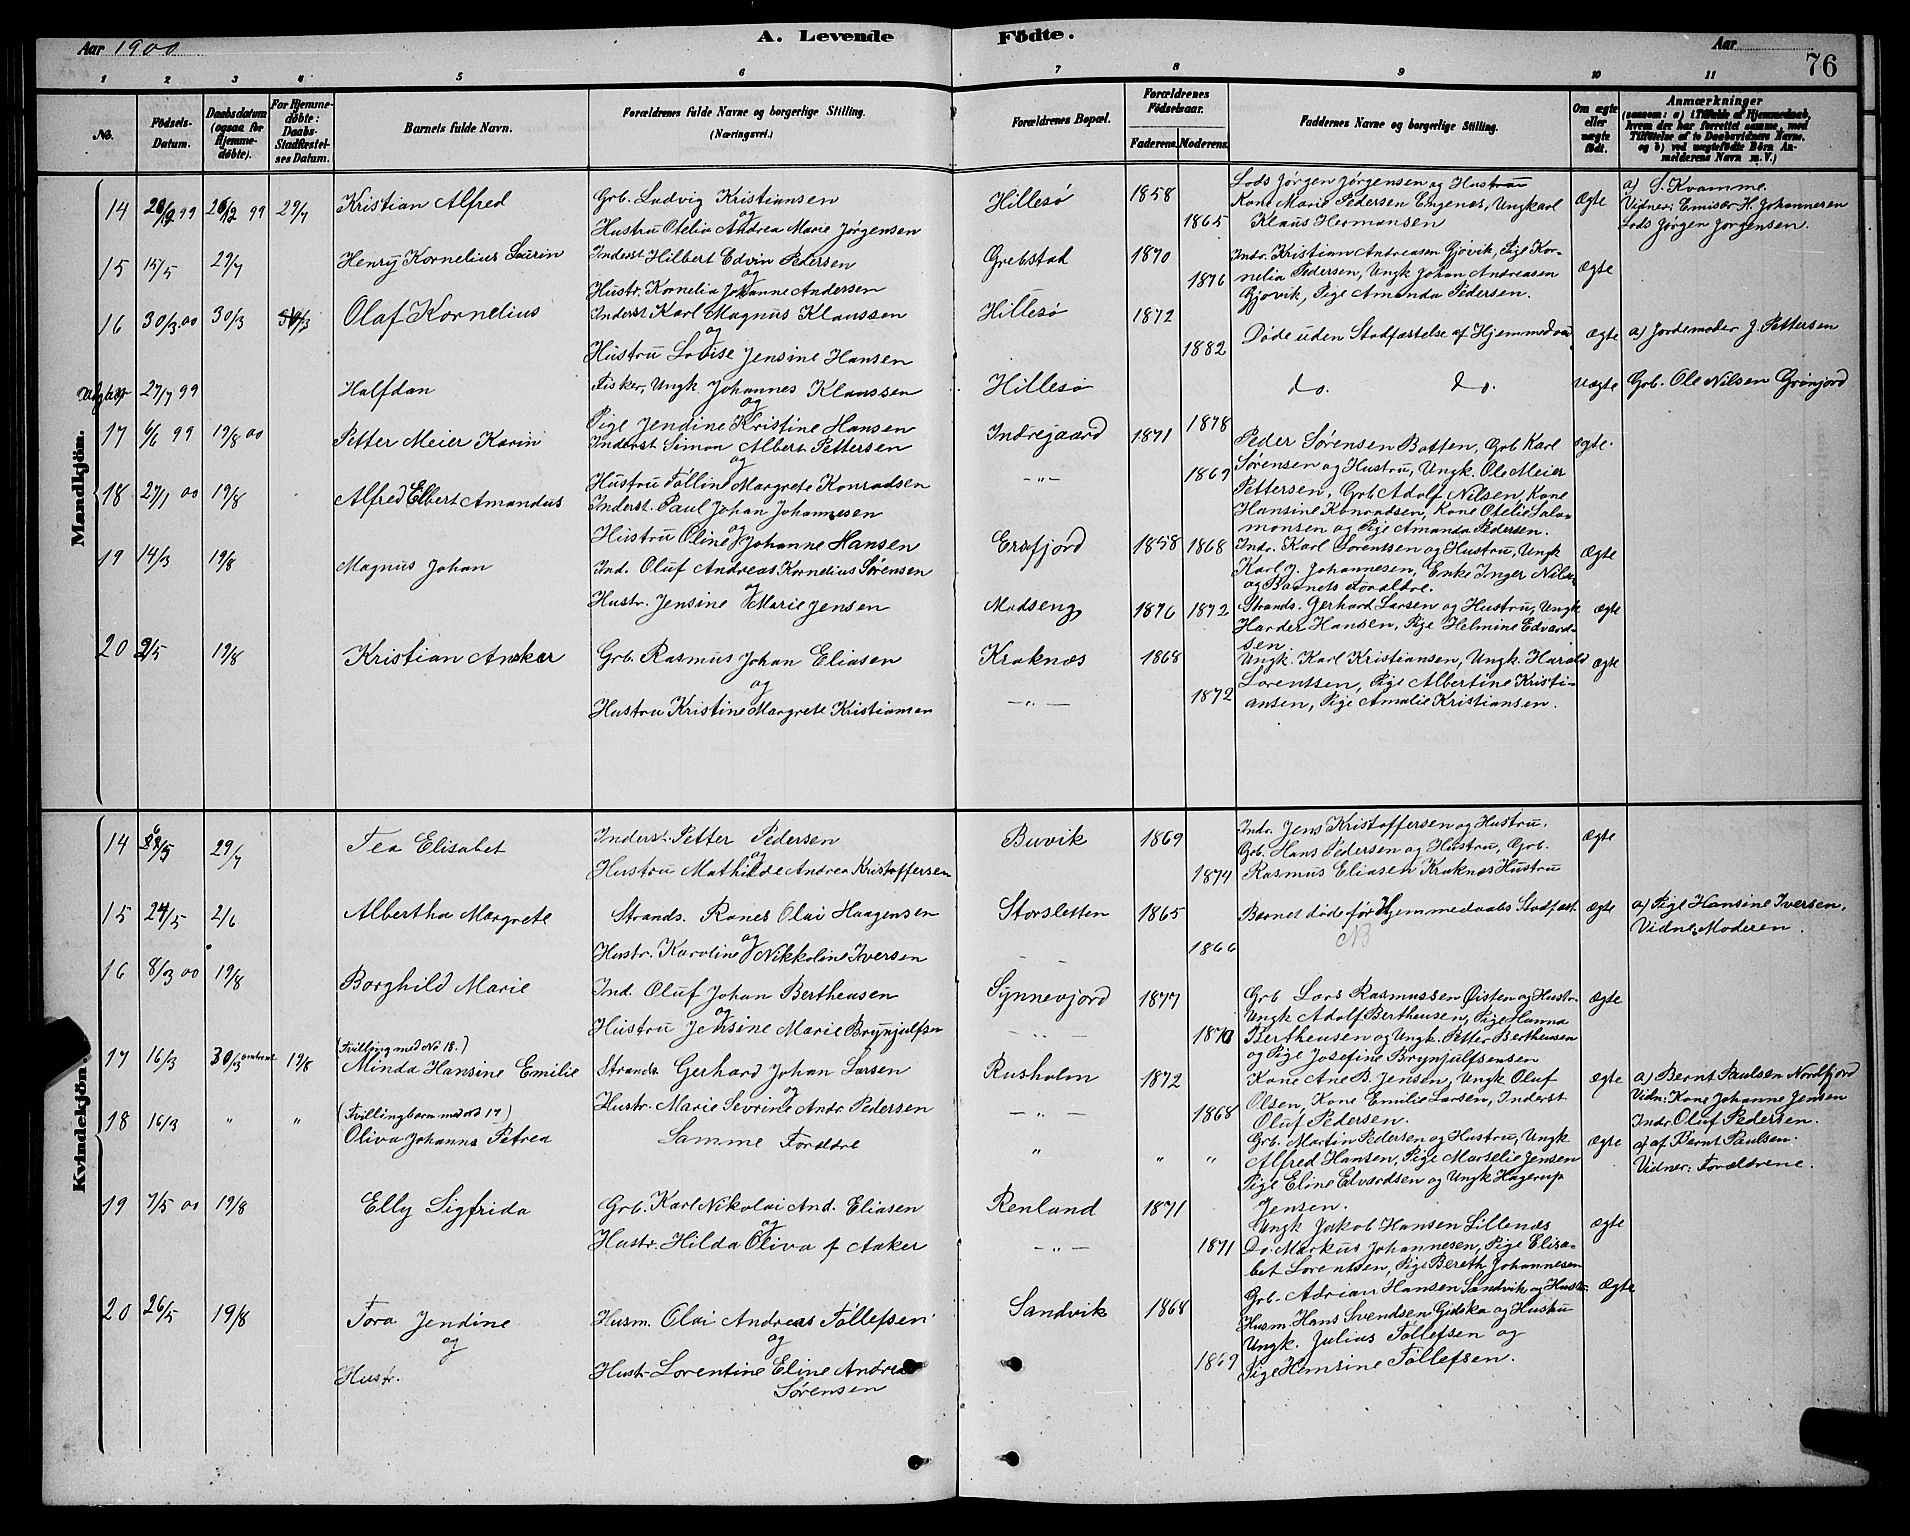 Aar 1900
A. Levende Födte.
Aar
76
1 2 3 4 5 6 7 8 9 10 11
No.
Födsels-Datum.
Daabsdatum (ogsaa for Hjemmedöbte).
For Hjemmedöbte: Daabs-Stadfæstelses Datum.
Barnets fulde Navn.
Forældrenes fulde Navne og borgerlige Stilling.
(Næringsvei.)
Forældrenes Bopæl.
Forældrenes Födselsaar.
Faderens. Moderens.
Faddernes Navne og borgerlige Stilling.
Om ægte eller uægte födt.
Anmærkninger
(saasom: a) i Tilfælde af Hjemmedaab, hvem der har forrettet samme, med Tilföielse af to Daabsvidners Navne, og b) ved uægtefödte Börn Anmelderens Navn m. V.)
Mandkjön.
14 28/9 99 26/12 99 29/7 Kristian Alfred
Grb. Ludvig Kristiansen
og
Hustru Otelia Andrea Marie Jørgensen
Hillesø 1858 1865
Lods Jørgen Jørgensen og Hustru
Kone Marie Pedersen Engenes, Ungkarl
Klaus Hermansen
Ægte
a) S. Kvamme.
Vidner: Emisær H. Johannesen
Lods Jørgen Jørgensen.
15 15/5 29/7 Henry Kornelius Laurin
Inderst Hilbert Edvin Pedersen
og
Hustr. Kornelia Johanne Andersen
Grebstad 1870 1876
Indr. Kristian Andreasen Gjövik, Pige Kor-
nelia Pedersen, Ungk Johan Andreasen
Gjövik, Pige Amanda Pedersen.
Ægte
16 30/3 00 30/3 Olaf Kornelius
Inderst Karl Magnus Klaussen
og
Hustru Lovise Jensine Hansen
Hillesø 1872 1882
Døde uden Stadfæstelse af Hjemmedaa
ægte
a) Jordemoder J. Pettersen
27/7 99 Halfdan
Fisker, Ungk. Johannes Klaussen
og
Pige Jendine Kristine Hansen
Hillesø 1878
do. do.
uægte
Grb. Ole Nilsen Grønjord
17 6/6 99 19/8 00 Petter Meier Karin
Inderst Simon Albert Pettersen
og
Hustru Tölline Margrete Konradsen
Indrejaard 1871 1869
Peder Sørensen Botten, Grb Karl
Sørensen og Hustru, Ungk. Ole Meier
Pettersen, Grb Adolf Nilsen, Kone
Hansine Konradsen, Kone Otelie Salo-
monsen og Pige Amanda Pedersen.
ægte.
18 27/1 00 19/8 Alfred Elbert Amandus
Inderst Paul Johan Johannesen
og
Hustru Oline Johanne Hansen
Ersfjord 1858 1868
Indr. Karl Lorentsen og Hustru, Ungk
Karl J. Johannesen, Enke Inger Nils-
og Barnets Forældre.
Ægte
19 14/3 19/8 Magnus Johan
Ind. Oluf Andreas Kornelius Sørensen
og
Hustr. Jensine Marie Jensen
Madseng 1876 1872
Strands. Gerhard Larsen og Hustru, Ungk
Harder Hansen, Pige Helmine Edvard-
sen.
ægte
20 2/5 19/8 Kristian Ansker
Grb. Rasmus Johan Eliasen
og
Hustru Kristine Margrete Kristiansen
Kraknæs 1868 1872
Ungk. Karl Kristiansen, Ungk. Harald
Lorentsen, Pige Albertine Kristi-
ansen, Pige Amalie Kristiansen.
ægte
Kvindekjön.
14 29/7 Tea Elisabet
Inderst. Petter Pedersen
og
Hustru Mathilde Andrea Kristoffersen
Buvik 1869 1874
Indr. Jens Kristoffersen og Hustru.
Grb. Hans Pedersen og Hustru, Grb.
Rasmus Eliasen Kraknæs Hustru
ægte
15 24/5 2/6 Albertha Margrete
Strands. Ranes Olai Haagensen
og
Hustr. Karoline Nikkoline Iversen
Storsletten 1865 1866
Barnet døde før Hjemmedaabs Stadfæst.
NB
ægte
a) Pige Hansine Iversen.
Vidne: Moderen.
16 8/3 00 19/8 Borghild Marie
Ind. Oluf Johan Bertheusen
og
Hustru Jensine Marie Brynjulfsen
Synnevjord 1877 1870
Grb Lars Rasmussen Øisten og Hustr.
Ungk Adolf Bertheusen, Pige Hanna
Bertheusen og Ungk. Petter Bertheusen
og Pige Josefine Brynjulfsensen
Ægte
17 16/3 30/3 19/8
(Tvilling med No 18.)
Minda Hansine Emilie
Strands. Gerhard Johan Larsen
og
Hustr. Marie Sevrine Andr. Pedersen
Rusholm 1872 1868
Kone Ane B. Jensen, Ungk Oluf
Olsen, Kone Emilie Larsen, Inderst
Oluf Pedersen.
ægte
a) Bernt Paulsen Nordfjord
Vidn: Kone Johanne Jensen
Indr. Oluf Pedersen.
18 16/3 " "
(Tvillingbarn med No 17)
Oliva Johanna Petrea
Samme Forældre
" " "
Grb. Martin Pedersen og Hustru, Ungk
Alfred Hansen, Pige Marselie Jensen
Pige Eline Edvardsen og Ungk Hagerup
Jensen.
ægte
a) af Bernt Paulsen.
Vidner: Forældrene.
19 7/5 00 19/8 Elly Sigfrida
Grb. Karl Nikolai And. Eliasen
og
Hustr. Hilda Oliva f Aaker
Renland 1871 1871
Ungk Jakob Hansen Lillenæs
Do. Markus Johannesen, Pige Elisa-
bet Lorentsen, Pige Bereth Johannesen
ægte
20 26/5 19/8 Tora Jendine
og
Hustr.
Husm. Olai Andreas Tollefsen
og
Hustr. Lorentine Eline Andrea
Sørensen
Sandvik 1868 1869
Grb. Adrian Hansen Sandvik og Hustr.
Husm. Hans Svendsen Gidska og Hustru
Ungk. Julius Tollefsen og
Pige Hansine Tollefsen.
Ægte